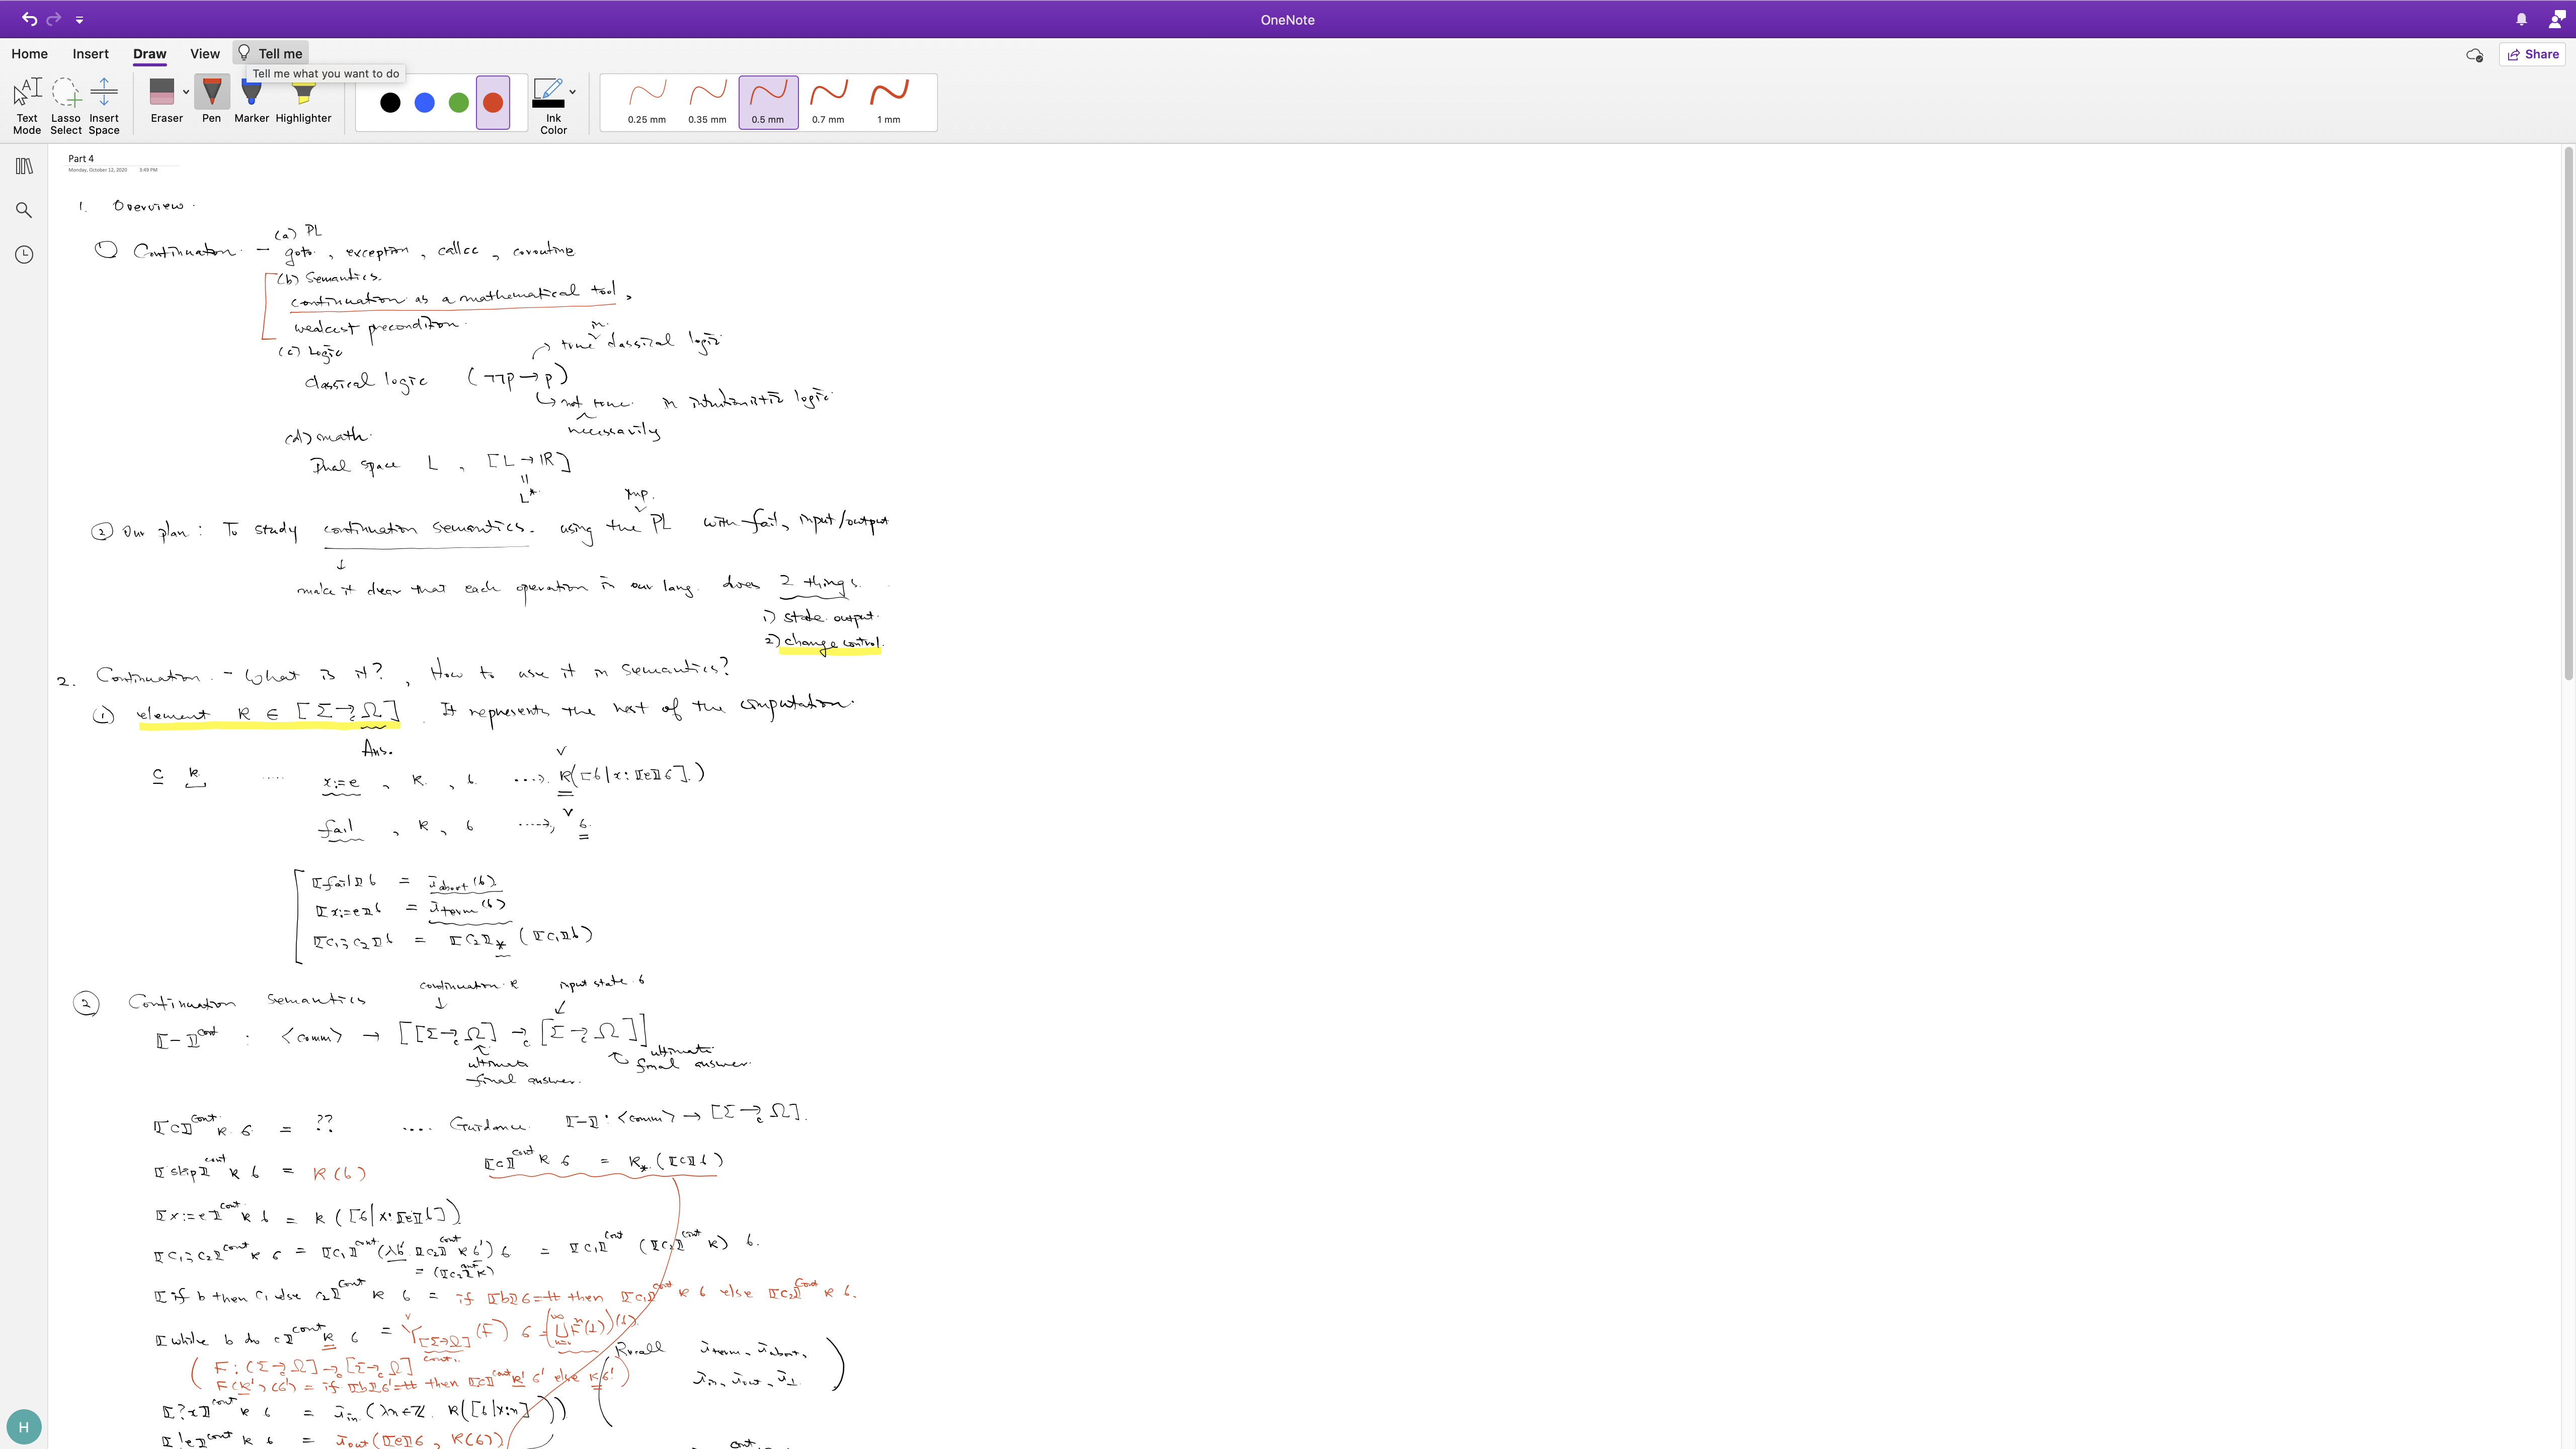 OneNote
Home Insert Draw View Tell me
Share
Tell me what you want to do
Text Mode
Lasso Select
Insert Space
Eraser
Pen
Marker
Highlighter
Ink Color
0.25 mm
0.35 mm
0.5 mm
0.7 mm
1 mm
Part 4
Monday, October 12, 2020 3:49 PM
1. Overview.
① Continuation. - (a) PL
goto, exception, callcc, coroutine
(b) Semantics.
continuation as a mathematical tool,
weakest precondition.
(c) Logic
true in classical logic
classical logic (¬¬p→p)
not necessarily true. in intuitionistic logic
(d) math.
Dual space L, [L→ℝ]
=
L*
② Our plan: To study continuation semantics. using the imp. PL with fail, input/output
↓
make it clear that each operation in our lang. does 2 things.
1) state output.
2) change control.
2. Continuation. - What is it?, How to use it in semantics?
① element κ ∈ [Σ→c Ω]. It represents the rest of the computation.
Ans.
c κ ..... x:=e, κ, σ ....> κ([σ|x:⟦e⟧σ])
fail, κ, σ ....> σ
⟦fail⟧σ = ι_abort(σ)
⟦x:=e⟧σ = ι_term(σ)
⟦c₁;c₂⟧σ = ⟦c₂⟧* (⟦c₁⟧σ)
continuation κ input state σ
② Continuation Semantics
⟦-⟧^cont : <comm> → [[Σ→c Ω] →c [Σ→c Ω]]
ultimate final answer.
ultimate final answer.
⟦c⟧^cont κ σ = ?? .... Guidance. ⟦-⟧: <comm> → [Σ→c Ω].
⟦skip⟧^cont κ σ = κ(σ) ⟦c⟧^cont κ σ = κ* (⟦c⟧σ)
⟦x:=e⟧^cont κ σ = κ([σ|x:⟦e⟧σ])
⟦c₁;c₂⟧^cont κ σ = ⟦c₁⟧^cont (λσ'. ⟦c₂⟧^cont κ σ') σ = ⟦c₁⟧^cont (⟦c₂⟧^cont κ) σ.
= (⟦c₂⟧^cont κ)
⟦if b then c₁ else c₂⟧^cont κ σ = if ⟦b⟧σ=tt then ⟦c₁⟧^cont κ σ else ⟦c₂⟧^cont κ σ.
⟦while b do c⟧^cont κ σ = Y_[Σ→Ω] (F) σ = (⊔_{n=0}^∞ Fⁿ(⊥))(σ)
(F: [Σ→c Ω] →c [Σ→c Ω] cont.
F(κ')(σ') = if ⟦b⟧σ'=tt then ⟦c⟧^cont κ' σ' else κσ')
(Recall ι_term, ι_abort,
ι_in, ι_out, ι_⊥)
⟦?x⟧^cont κ σ = ι_in (λn∈ℤ. κ([σ|x:n]))
⟦!e⟧^cont κ σ = ι_out (⟦e⟧σ, κ(σ))
cont
H